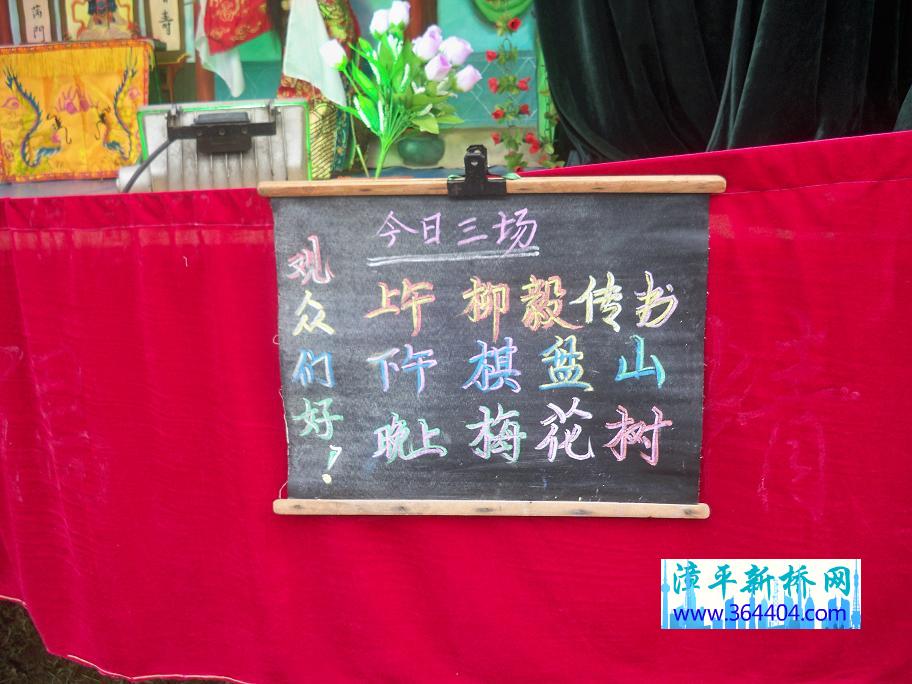 今日三场
观众们好！
上午 柳毅传书
下午 棋盘山
晚上 梅花树
漳平新桥网
www.364404.com